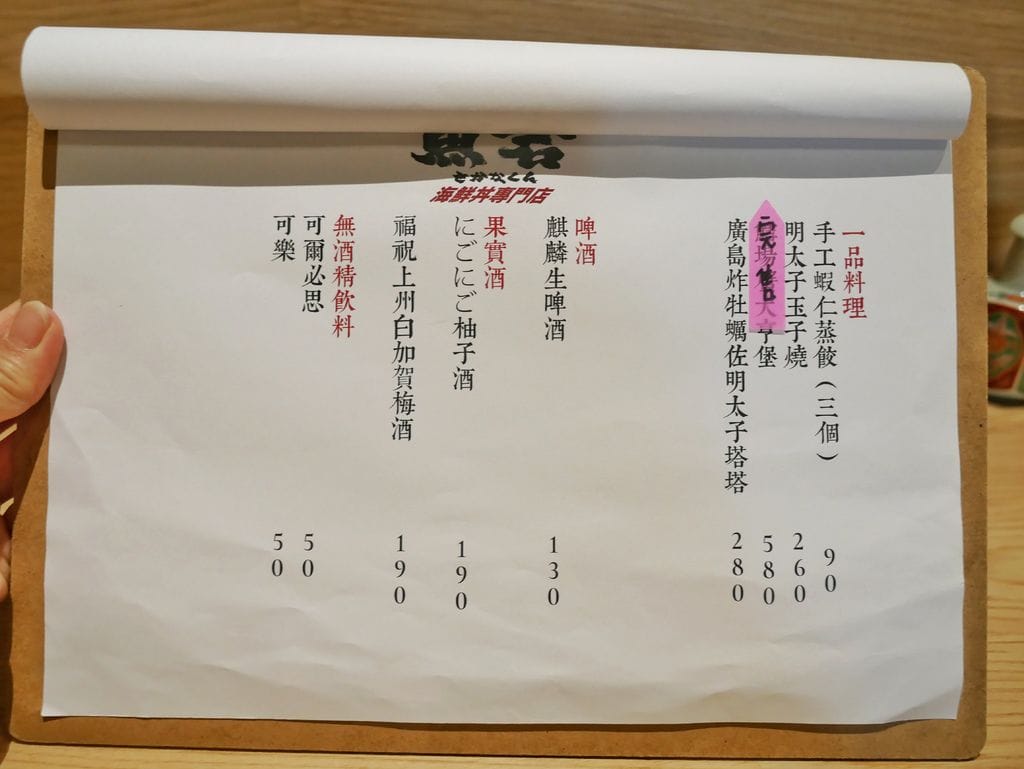 さかなくん
海鮮丼專門店
一品料理
手工蝦仁蒸餃(三個) 90
明太子玉子燒 260
完售
大亨堡 580
廣島炸牡蠣佐明太子塔塔 280
啤酒
麒麟生啤酒 130
果實酒
にごにご柚子酒 190
福祝上州白加賀梅酒 190
無酒精飲料
可爾必思 50
可樂 50